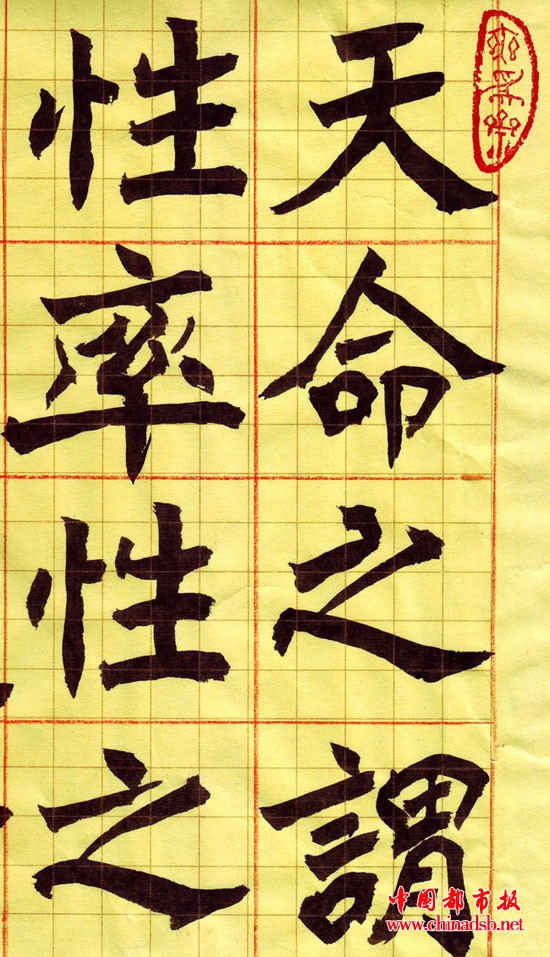 天命之謂
性率性之
中国都市报
www.chinadsb.net